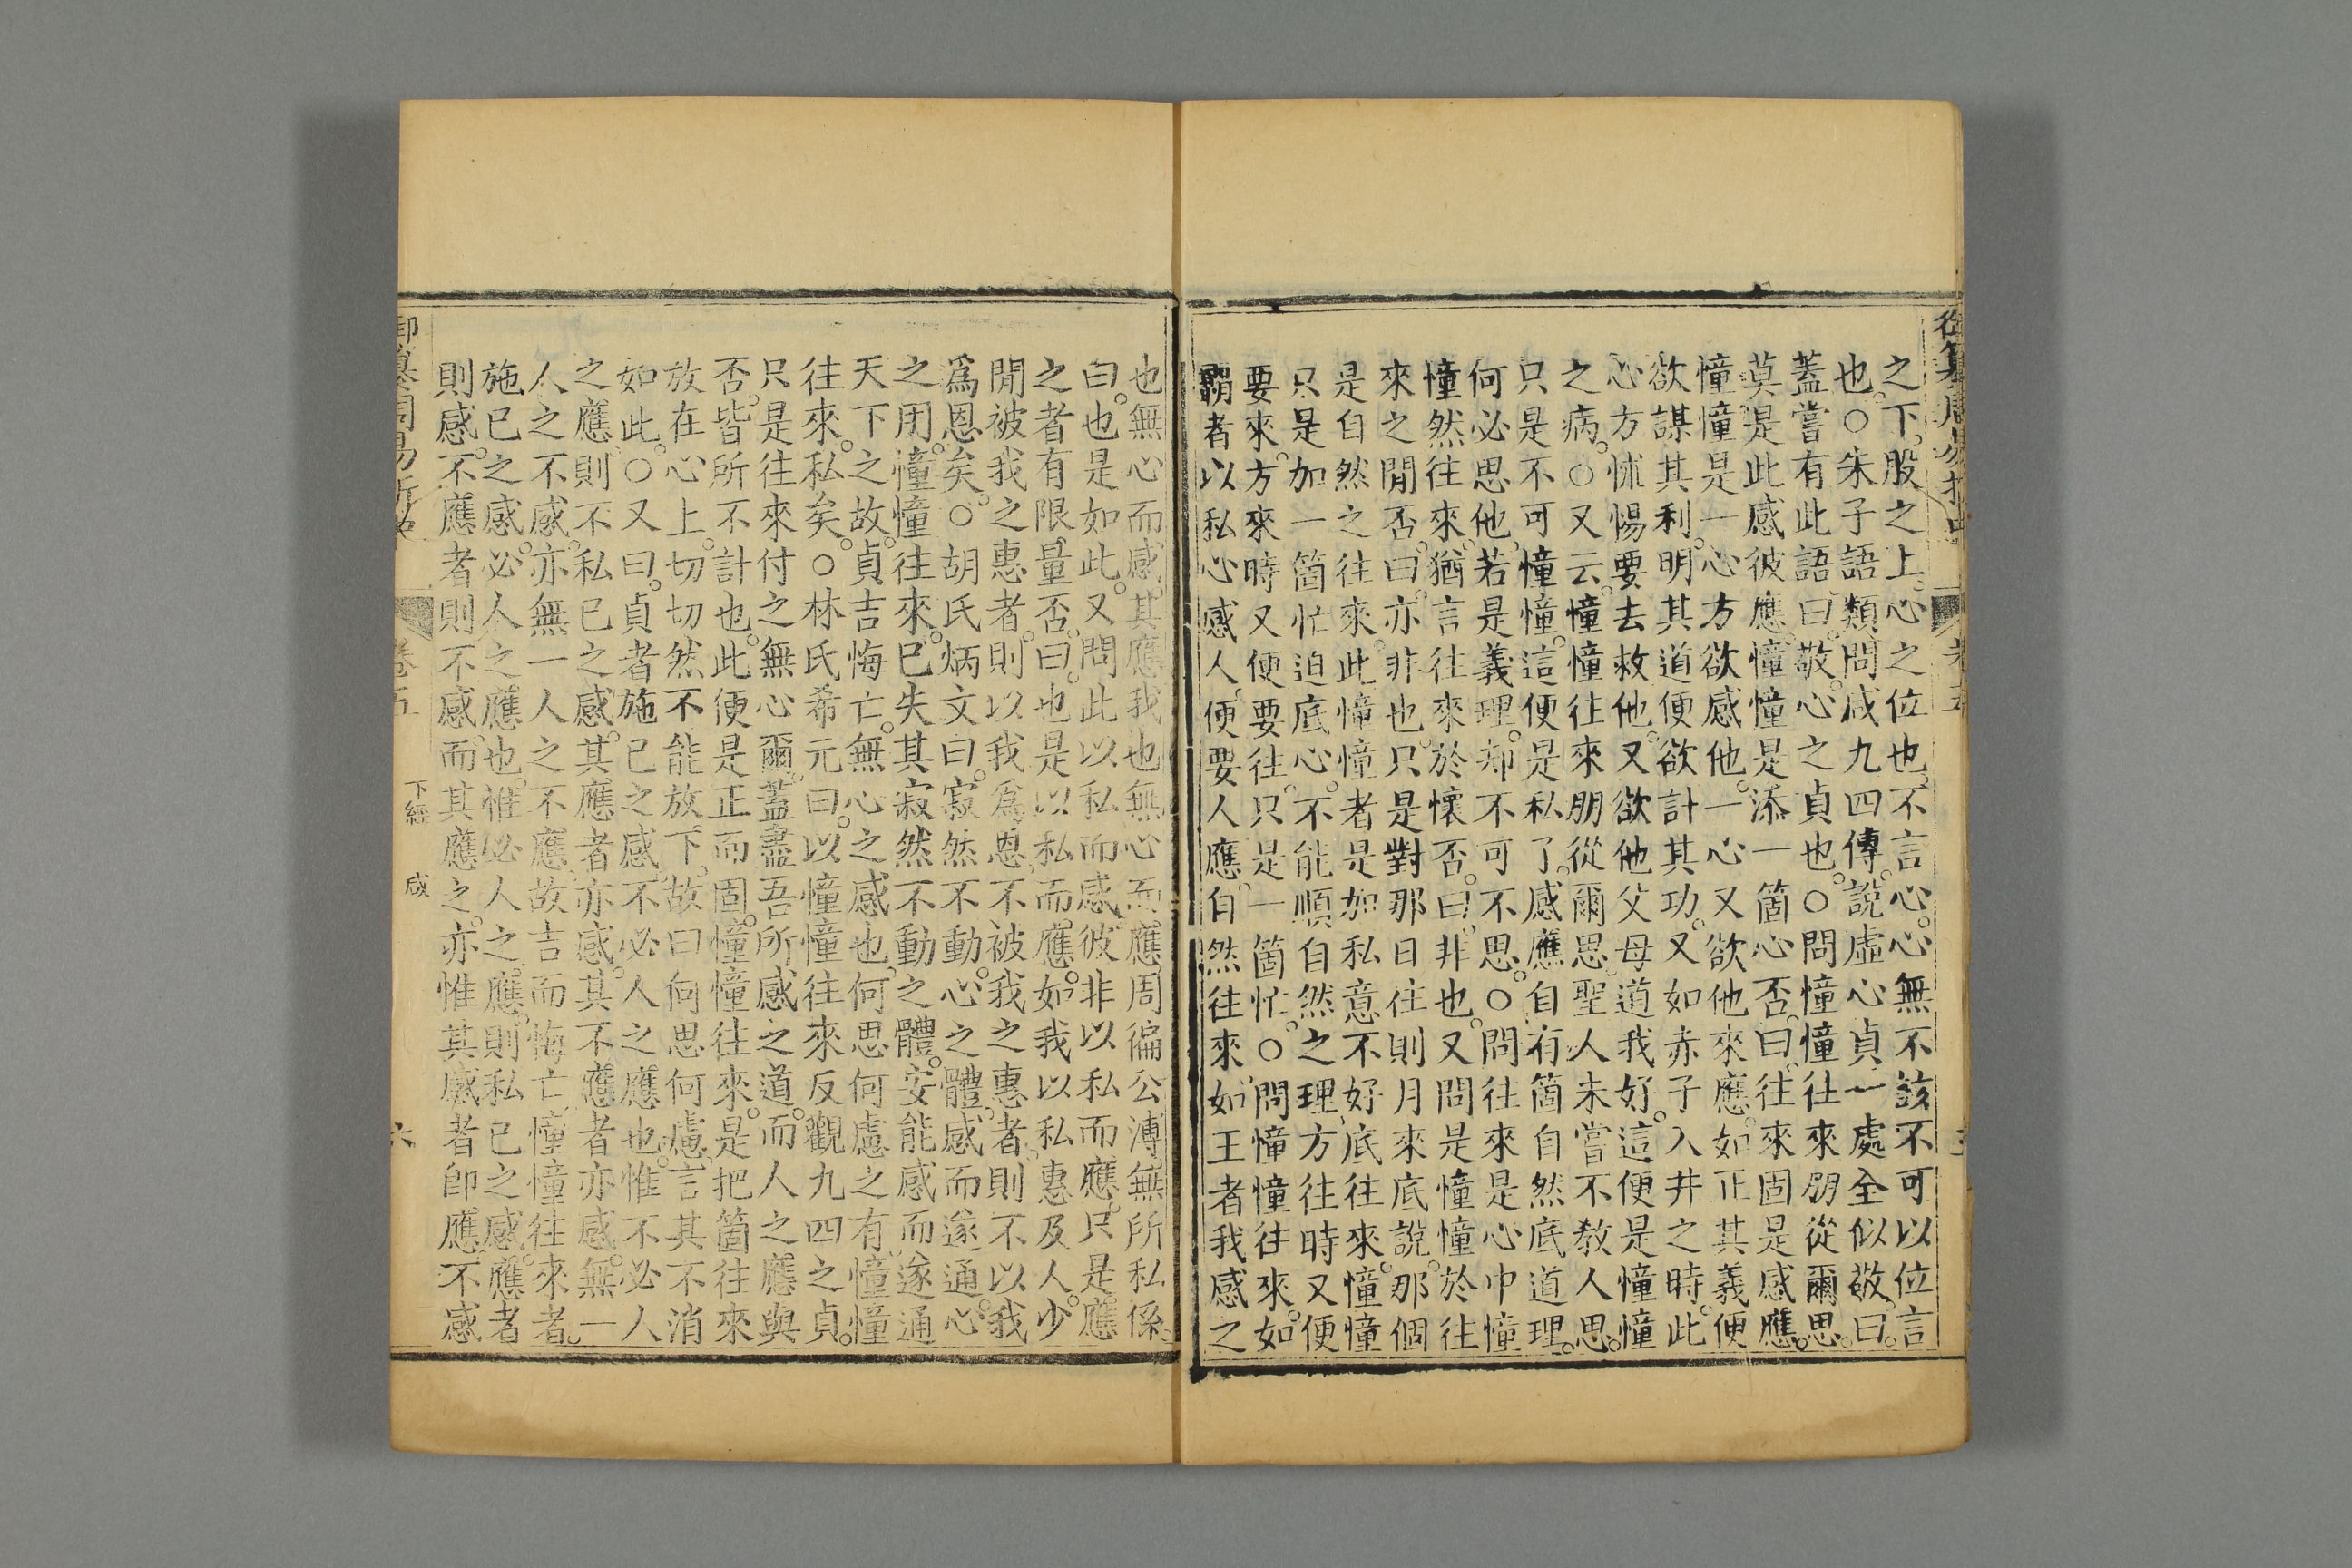 之下。股之上。心之位也。不言心。心無不該。不可以位言
也。○朱子語類。問咸九四傳。說虛心貞一處。全似敬。曰。
蓋嘗有此語曰。敬。心之貞也。○問憧憧往來。朋從爾思。
莫是此感彼應。憧憧是添一箇心否。曰。往來固是感應。
憧憧是一心方欲感他。一心又欲他來應。如正其義。便
欲謀其利。明其道。便欲計其功。又如赤子入井之時。此
心方怵惕要去救他。又欲他父母道我好。這便是憧憧
之病。○又云。憧憧往來。朋從爾思。聖人未嘗不敎人思。
只是不可憧憧。這便是私了。感應自有箇自然底道理。
何必思他。若是義理。却不可不思。○問往來是心中憧
憧然往來。猶言往來於懷否。曰。非也。又問是憧憧於往
來之閒否。曰。亦非也。只是對那日往則月來底說。那個
是自然之往來。此憧憧者是加私意不好底往來。憧憧
只是加一箇忙迫底心。不能順自然之理。方往時又便
要來。方來時又便要往。只是一箇忙。○問憧憧往來。如
霸者以私心感人。便要人應。自然往來。如王者我感之
也無心而感。其應我也無心而應。周徧公溥。無所私係。
曰。也是如此。又問此以私而感。彼非以私而應。只是應
之者有限量否。曰。也是以私而應。如我以私惠及人。少
閒被我之惠者。則以我爲恩。不被我之惠者。則不以我
爲恩矣。○胡氏炳文曰。寂然不動。心之體。感而遂通。心
之用。憧憧往來。已失其寂然不動之體。安能感而遂通
天下之故。貞吉悔亡。無心之感也。何思何慮之有。憧憧
往來。私矣。○林氏希元曰。以憧憧往來反觀九四之貞。
只是往來付之無心爾。蓋盡吾所感之道。而人之應與
否。皆所不計也。此便是正而固。憧憧往來。是把箇往來
放在心上。切切然不能放下。故曰何思何慮。言其不消
如此。○又曰。貞者施已之感。不必人之應也。惟不必人
之應。則不私已之感。其應者亦感。其不應者亦感。無一
人之不感。亦無一人之不應。故吉而悔亡。憧憧往來者。
施已之感。必人之應也。惟必人之應。則私已之感。應者
則感。不應者則不感。而其應之。亦惟其感者卽應。不感
卷五
下經
咸
六